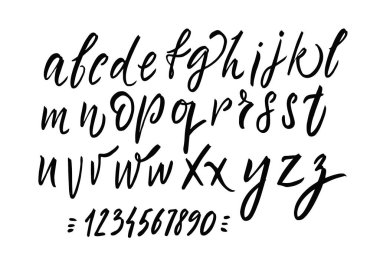 abcdefghijkl
mnopqrrsst
uvvwwxxyzz
1234567890